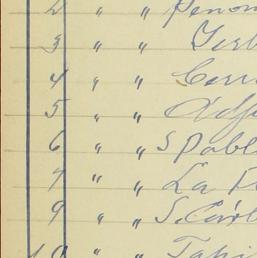 2 " " Penon
3 " "
4 " " Cerr
5 " "
6 " " S Pabl
7 " " La
9 " " S. Carl
10 " " Tapi